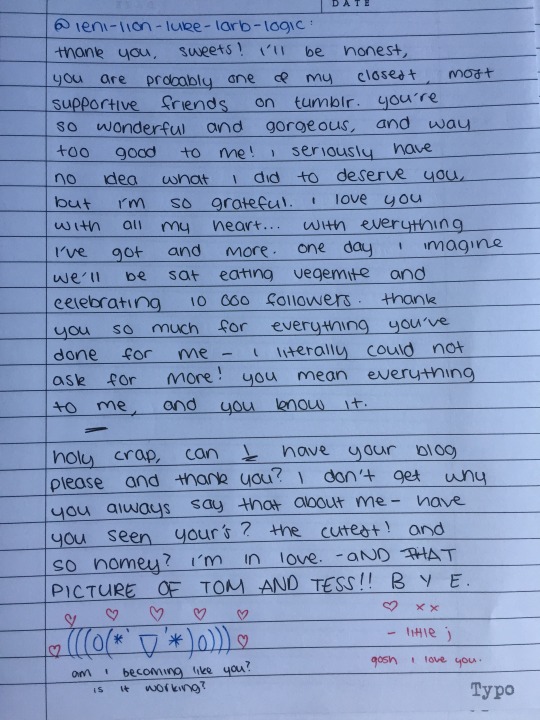 DATE
@leni-lion-luke-larb-logic:
thank you, sweets! i'll be honest,
you are probably one of my closest, most
supportive friends on tumblr. you're
so wonderful and gorgeous, and way
too good to me! i seriously have
no idea what i did to deserve you,
but i'm so grateful. i love you
with all my heart... with everything
i've got and more. one day i imagine
we'll be sat eating vegemite and
celebrating 10 000 followers. thank
you so much for everything you've
done for me - i literally could not
ask for more! you mean everything
to me, and you know it.
holy crap, can I have your blog
please and thank you? I don't get why
you always say that about me - have
you seen your's? the cutest! and
so homey? i'm in love. -AND THAT
PICTURE OF TOM AND TESS!! B Y E.
♡ ♡ ♡ ♡ ♡
♡ (((O(*´▽`*)O))) ♡
am i becoming like you?
is it working?
♡ xx
- little j
gosh i love you.
Typo